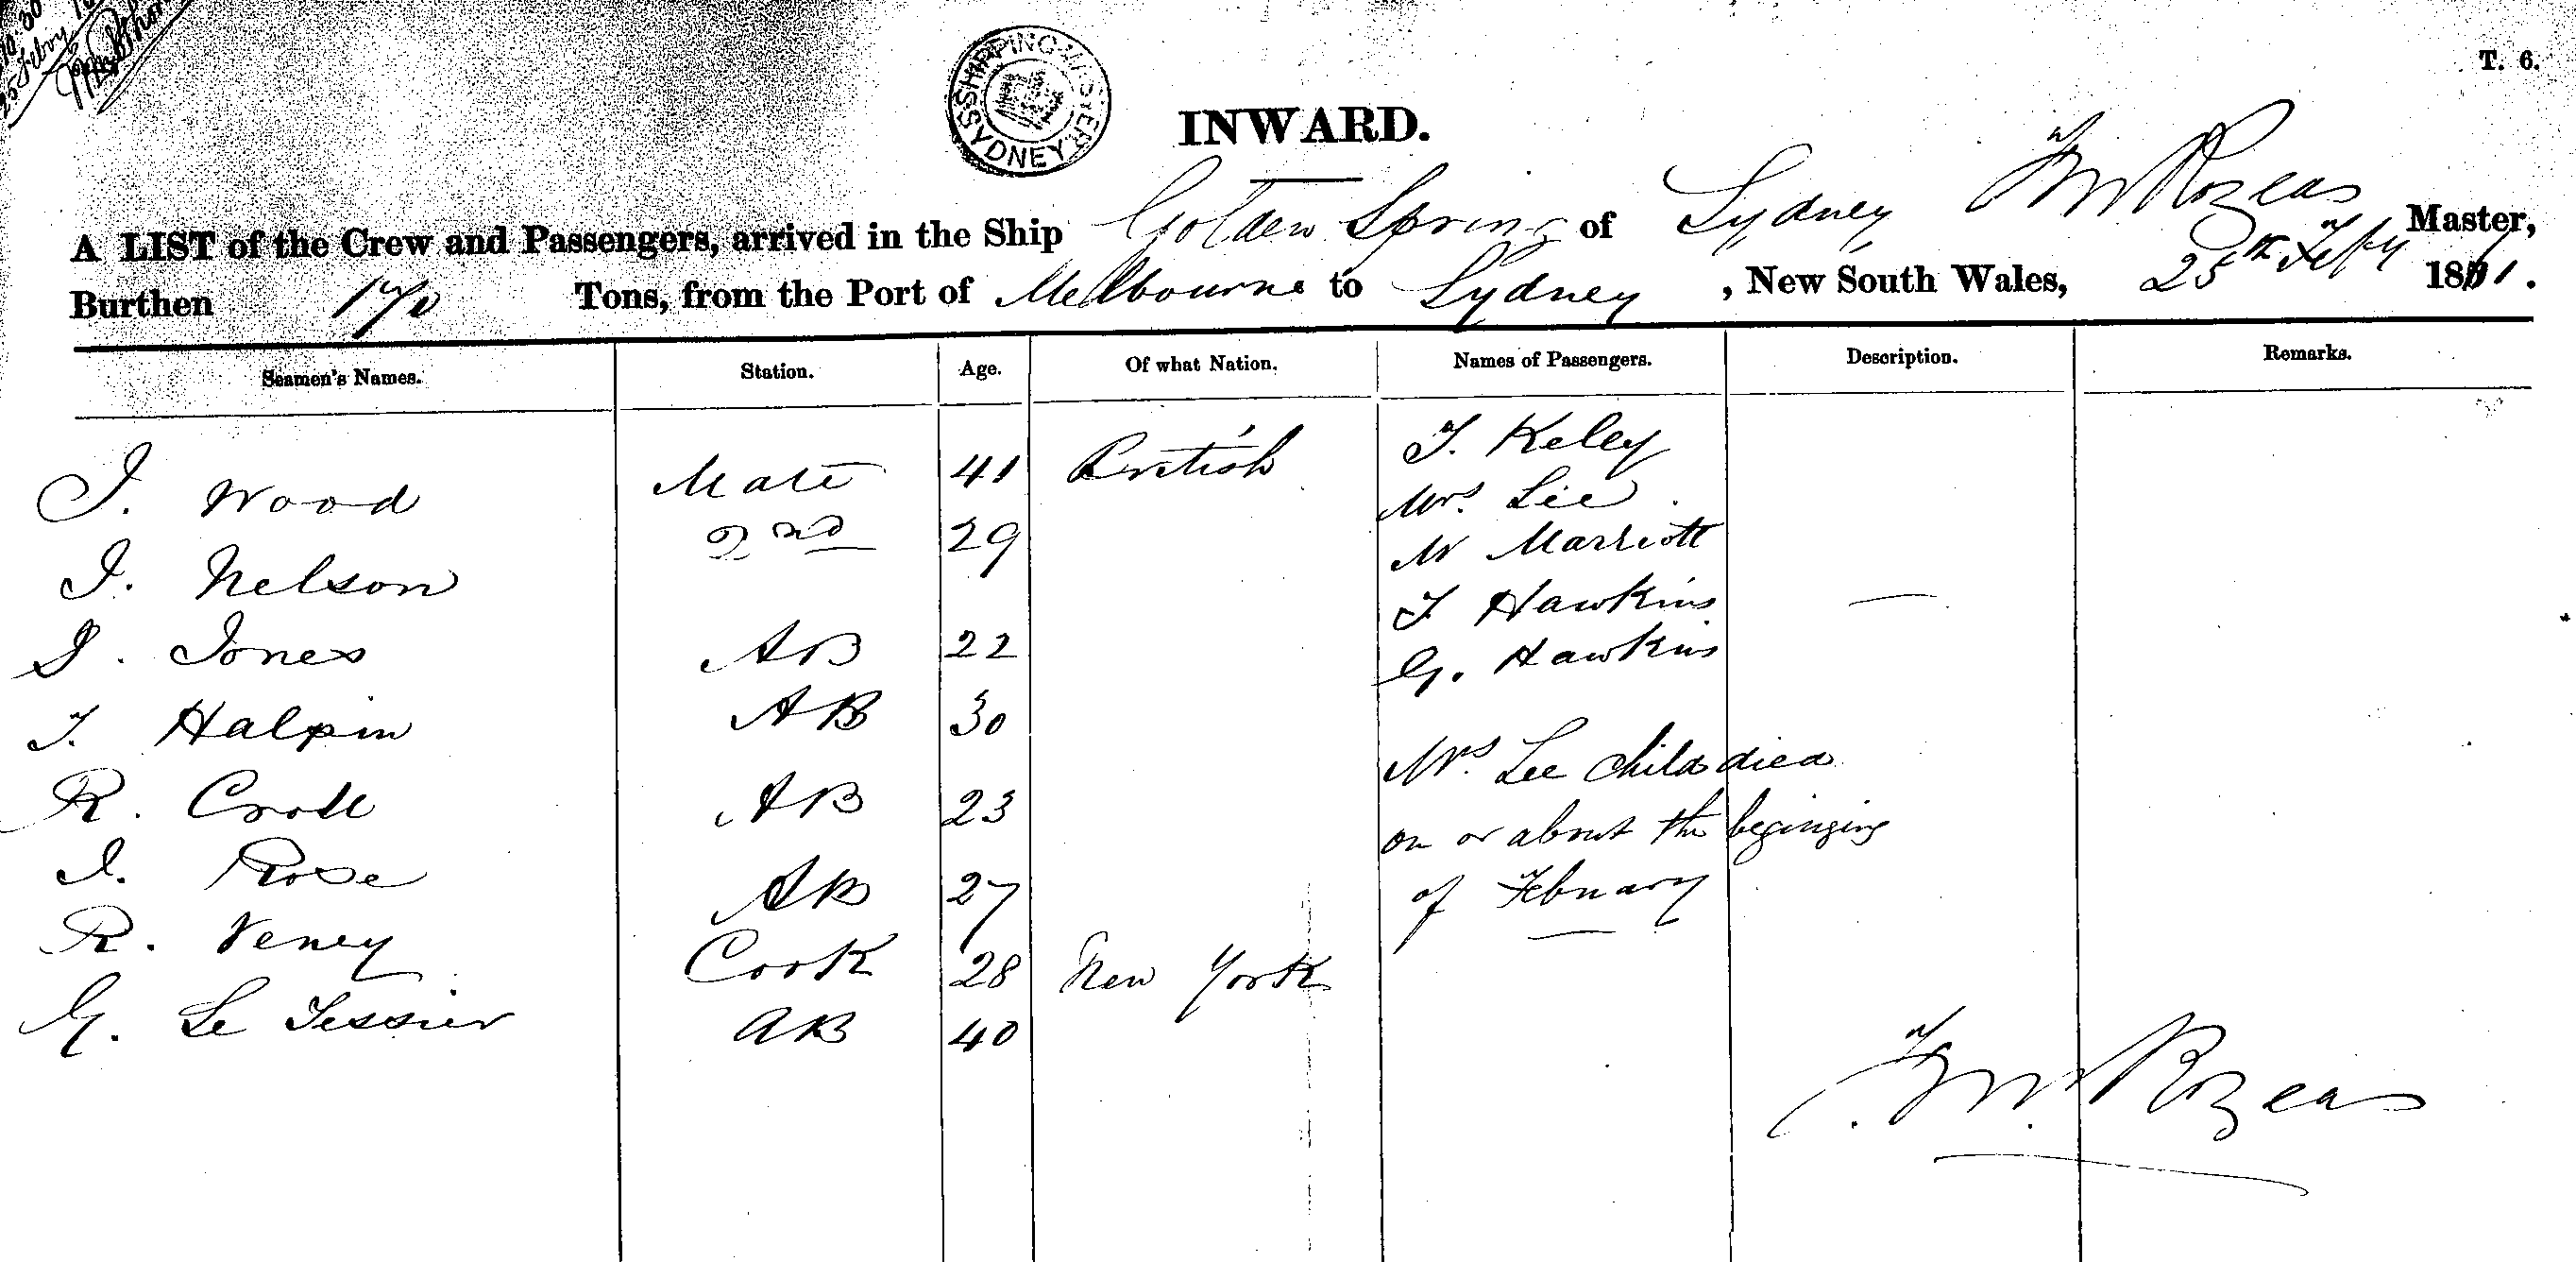 10.30
25 Feby
SHIPPING MASTER SYDNEY
T. 6.
INWARD.
A LIST of the Crew and Passengers, arrived in the Ship Golden Spring of Sydney Wm Rozeas Master,
Burthen 170 Tons, from the Port of Melbourne to Sydney, New South Wales, 25th Feby 1871.
Seamen's Names. Station. Age. Of what Nation. Names of Passengers. Description. Remarks.
J. Wood Mate 41 British T. Keley
Mrs. Lee
J. Nelson 2nd 29 W Marriott
T Hawkins —
D. Jones AB 22 G. Hawkins
T. Halpin AB 30
Mrs. Lee child died
R. Croll AB 23 on or about the begining
J. Rose AB 27 of February
R. Veney Cook 28 New York
G. Le Tessier AB 40
Wm. Rozeas